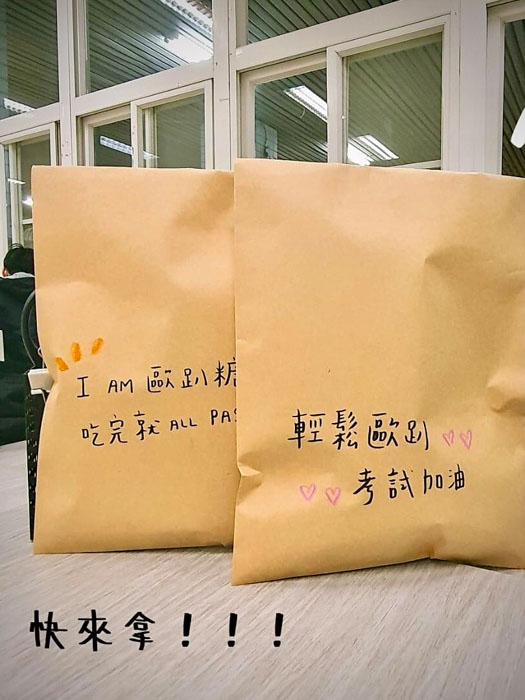 I AM 歐趴糖
吃完就 ALL PAS
輕鬆歐趴
考試加油
快來拿！！！